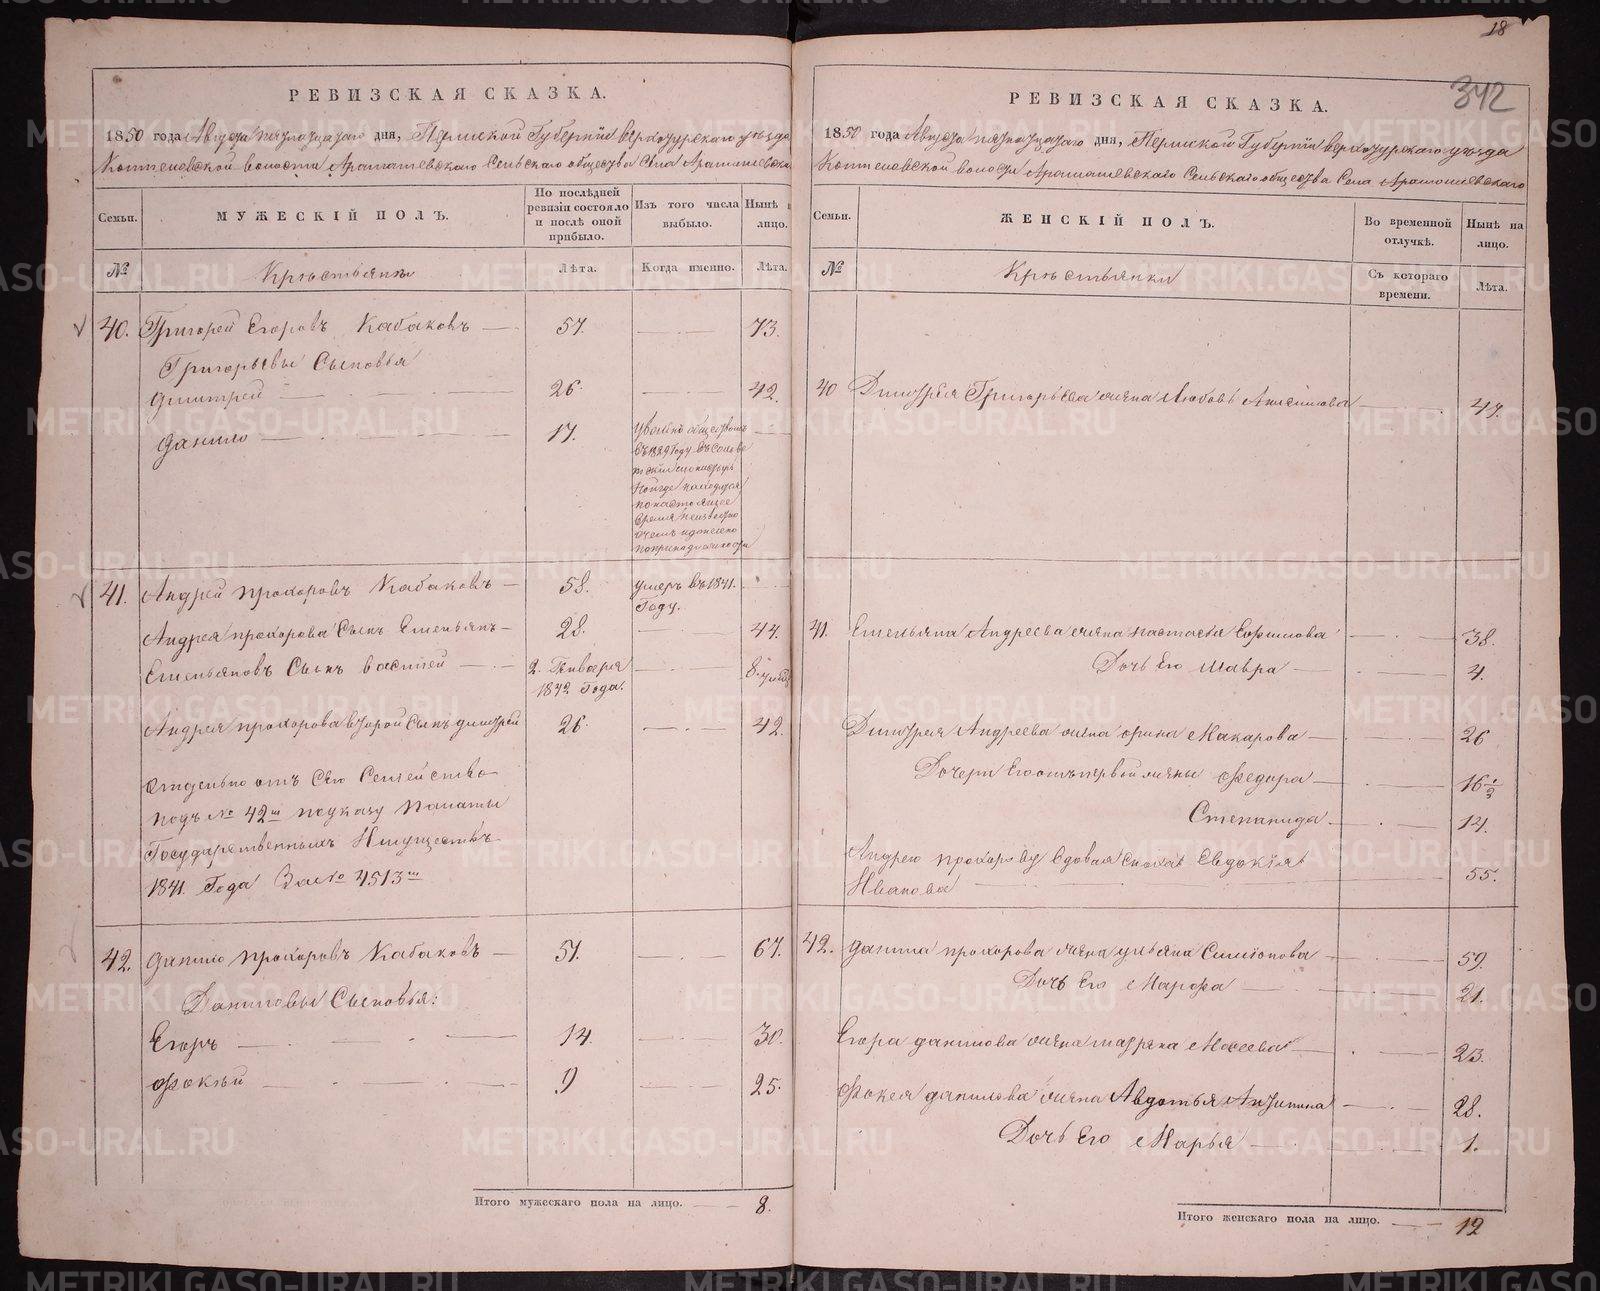 18
342
РЕВИЗСКАЯ СКАЗКА.
1850 года Августа пятнадцатаго дня, Пермской Губерніи Верхотурскаго уѣзда
Коптеловской волости Арамашевскаго Сельскаго общества Села Арамашевска
Семьи. МУЖЕСКІЙ ПОЛЪ. По послѣдней ревизіи состояло и послѣ оной прибыло. Изъ того числа выбыло. Нынѣ лицо.
№ Крѣстьянѣ Лѣта. Когда именно. Лѣта.
40. Григорей Егоровъ Кабаковъ 57. 73.
Григорьевы Сыновья
Дмитрей 26. 42.
Данило 17. Уволенъ обществомъ
въ 1829 Году въ Солове
тскій монастырь
но находится
по настоящее
время неизвестно
41. Андрей Прохоровъ Кабаковъ 58. умеръ въ 1841.
Году.
Андрея Прохорова Сынъ Емельянъ 28. 44.
Емельяновъ Сынъ Василей 2. Генваря 8.
1842 Года.
Андрея Прохорова второй Сынъ Дмитрей 26. 42.
Отдельно отъ Сего Семейство
подъ № 42м по указу Палаты
Государственныхъ Имуществъ
1841. Года За № 4513м
42. Данило Прохоровъ Кабаковъ 51. 67.
Даниловы Сыновья:
Егоръ 14. 30.
Фокѣй 9 25.
Итого мужескаго пола на лицо. 8.
РЕВИЗСКАЯ СКАЗКА.
1850 года Августа пятнадцатаго дня, Пермской Губерніи Верхотурскаго уѣзда
Коптеловской волости Арамашевскаго Сельскаго общества Села Арамашевскаго
Семьи. ЖЕНСКІЙ ПОЛЪ. Во временной отлучкѣ. Нынѣ на лицо.
№ Крѣстьянки Съ котораго времени. Лѣта.
40 Дмитрея Григорьева жена Любовь Анисимова 47.
41. Емельяна Андреева жена Настасья Ефимова 38.
Дочь Его Мавра 4.
Дмитрея Андреева жена Орина Макарова 26
Дочери Его отъ первой жены Федора 16½
Степанида 14.
Андрею Прохорову вдовая Сноха Евдокія
Иванова 55.
42. Данила Прохорова жена Ульяна Симионова 59.
Дочь Его Марфа 21.
Егора Данилова жена Матряна Мосеева 23.
Фокея Данилова жена Авдотья Антипина 28.
Дочь Его Марья 1.
Итого женскаго пола на лицо. 12